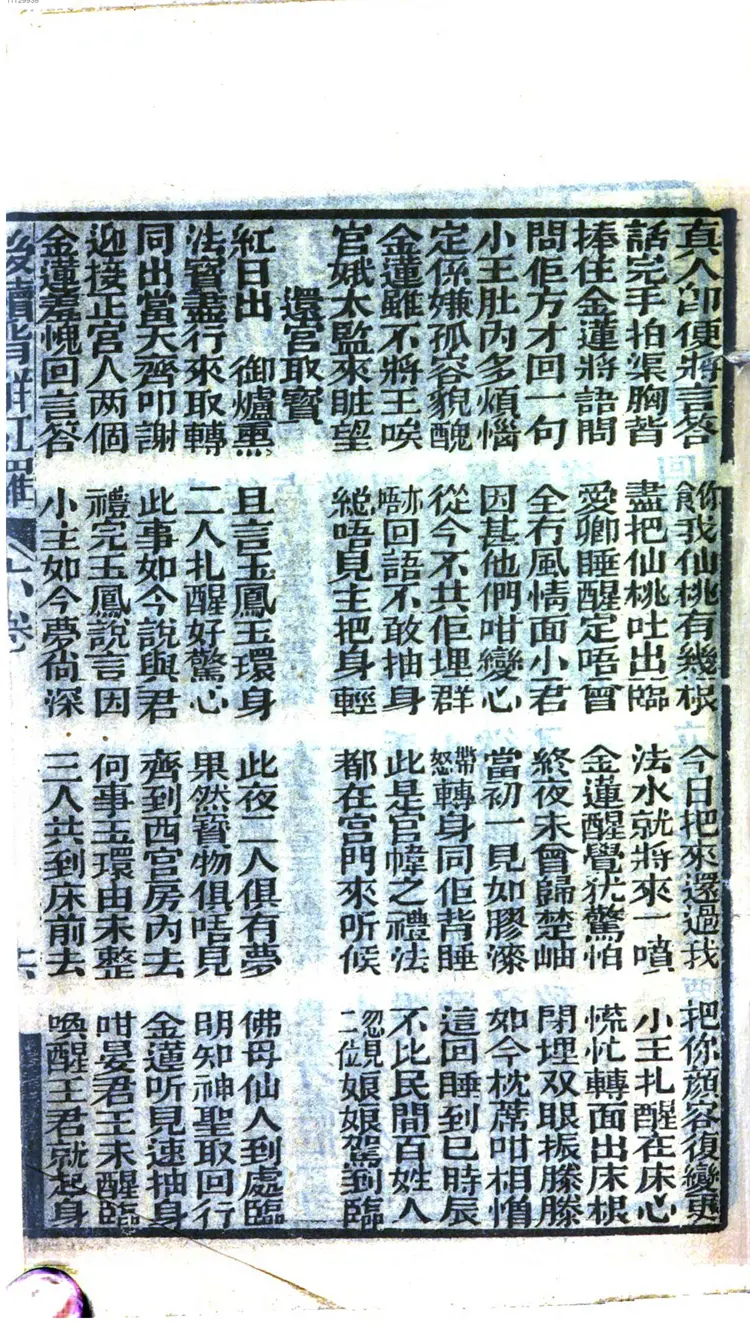 11129936
真人即便將言答 你食我仙桃有幾根 今日把來還過我 把你顏容復變更
話完手拍渠胸背 盡把仙桃吐出臨 法水就將來一噴 小王扎醒在床心
捧住金蓮將語問 愛卿睡醒定唔曾 金蓮醒覺犹驚怕 慌忙轉面出床根
問佢方才回一句 全冇風情面小君 終夜未曾歸楚岫 閉埋双眼振滕滕
小王肚內多煩惱 因甚他們咁變心 當初一見如膠漆 如今枕蓆咁相憎
定係嫌孤容貌醜 從今不共佢埋群 帶怒轉身同佢背睡 這回睡到巳時辰
金蓮雖不將王唉 亦唔回語不敢抽身 此是宮幃之禮法 不比民間百姓人
官娥太監來望 總唔見主把身輕 都在宮門來听候 忽見二位娘娘駕到臨
還宮取寳
紅日出 御爐熏 且言玉鳳玉環身 此夜二人俱有夢 佛母仙人到處臨
法寳盡行來取轉 二人扎醒好驚心 果然寳物俱唔見 明知神聖取回行
同出當天齊叩謝 此事如今說與君 齊到西宮房內去 金蓮听見速抽身
迎接正宮人两個 禮完玉鳳說言因 何事玉環由未整 咁晏君王未醒臨
金蓮羞愧回言答 小主如今夢尙深 三人共到床前去 喚醒王君就起身
後續背解紅羅 六卷 六